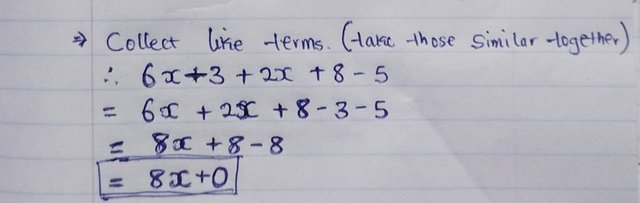 ⇒ Collect like terms. (take those similar together)
∴ 6x+3 + 2x + 8 - 5
= 6x + 2x + 8 - 3 - 5
= 8x + 8 - 8
= 8x+0